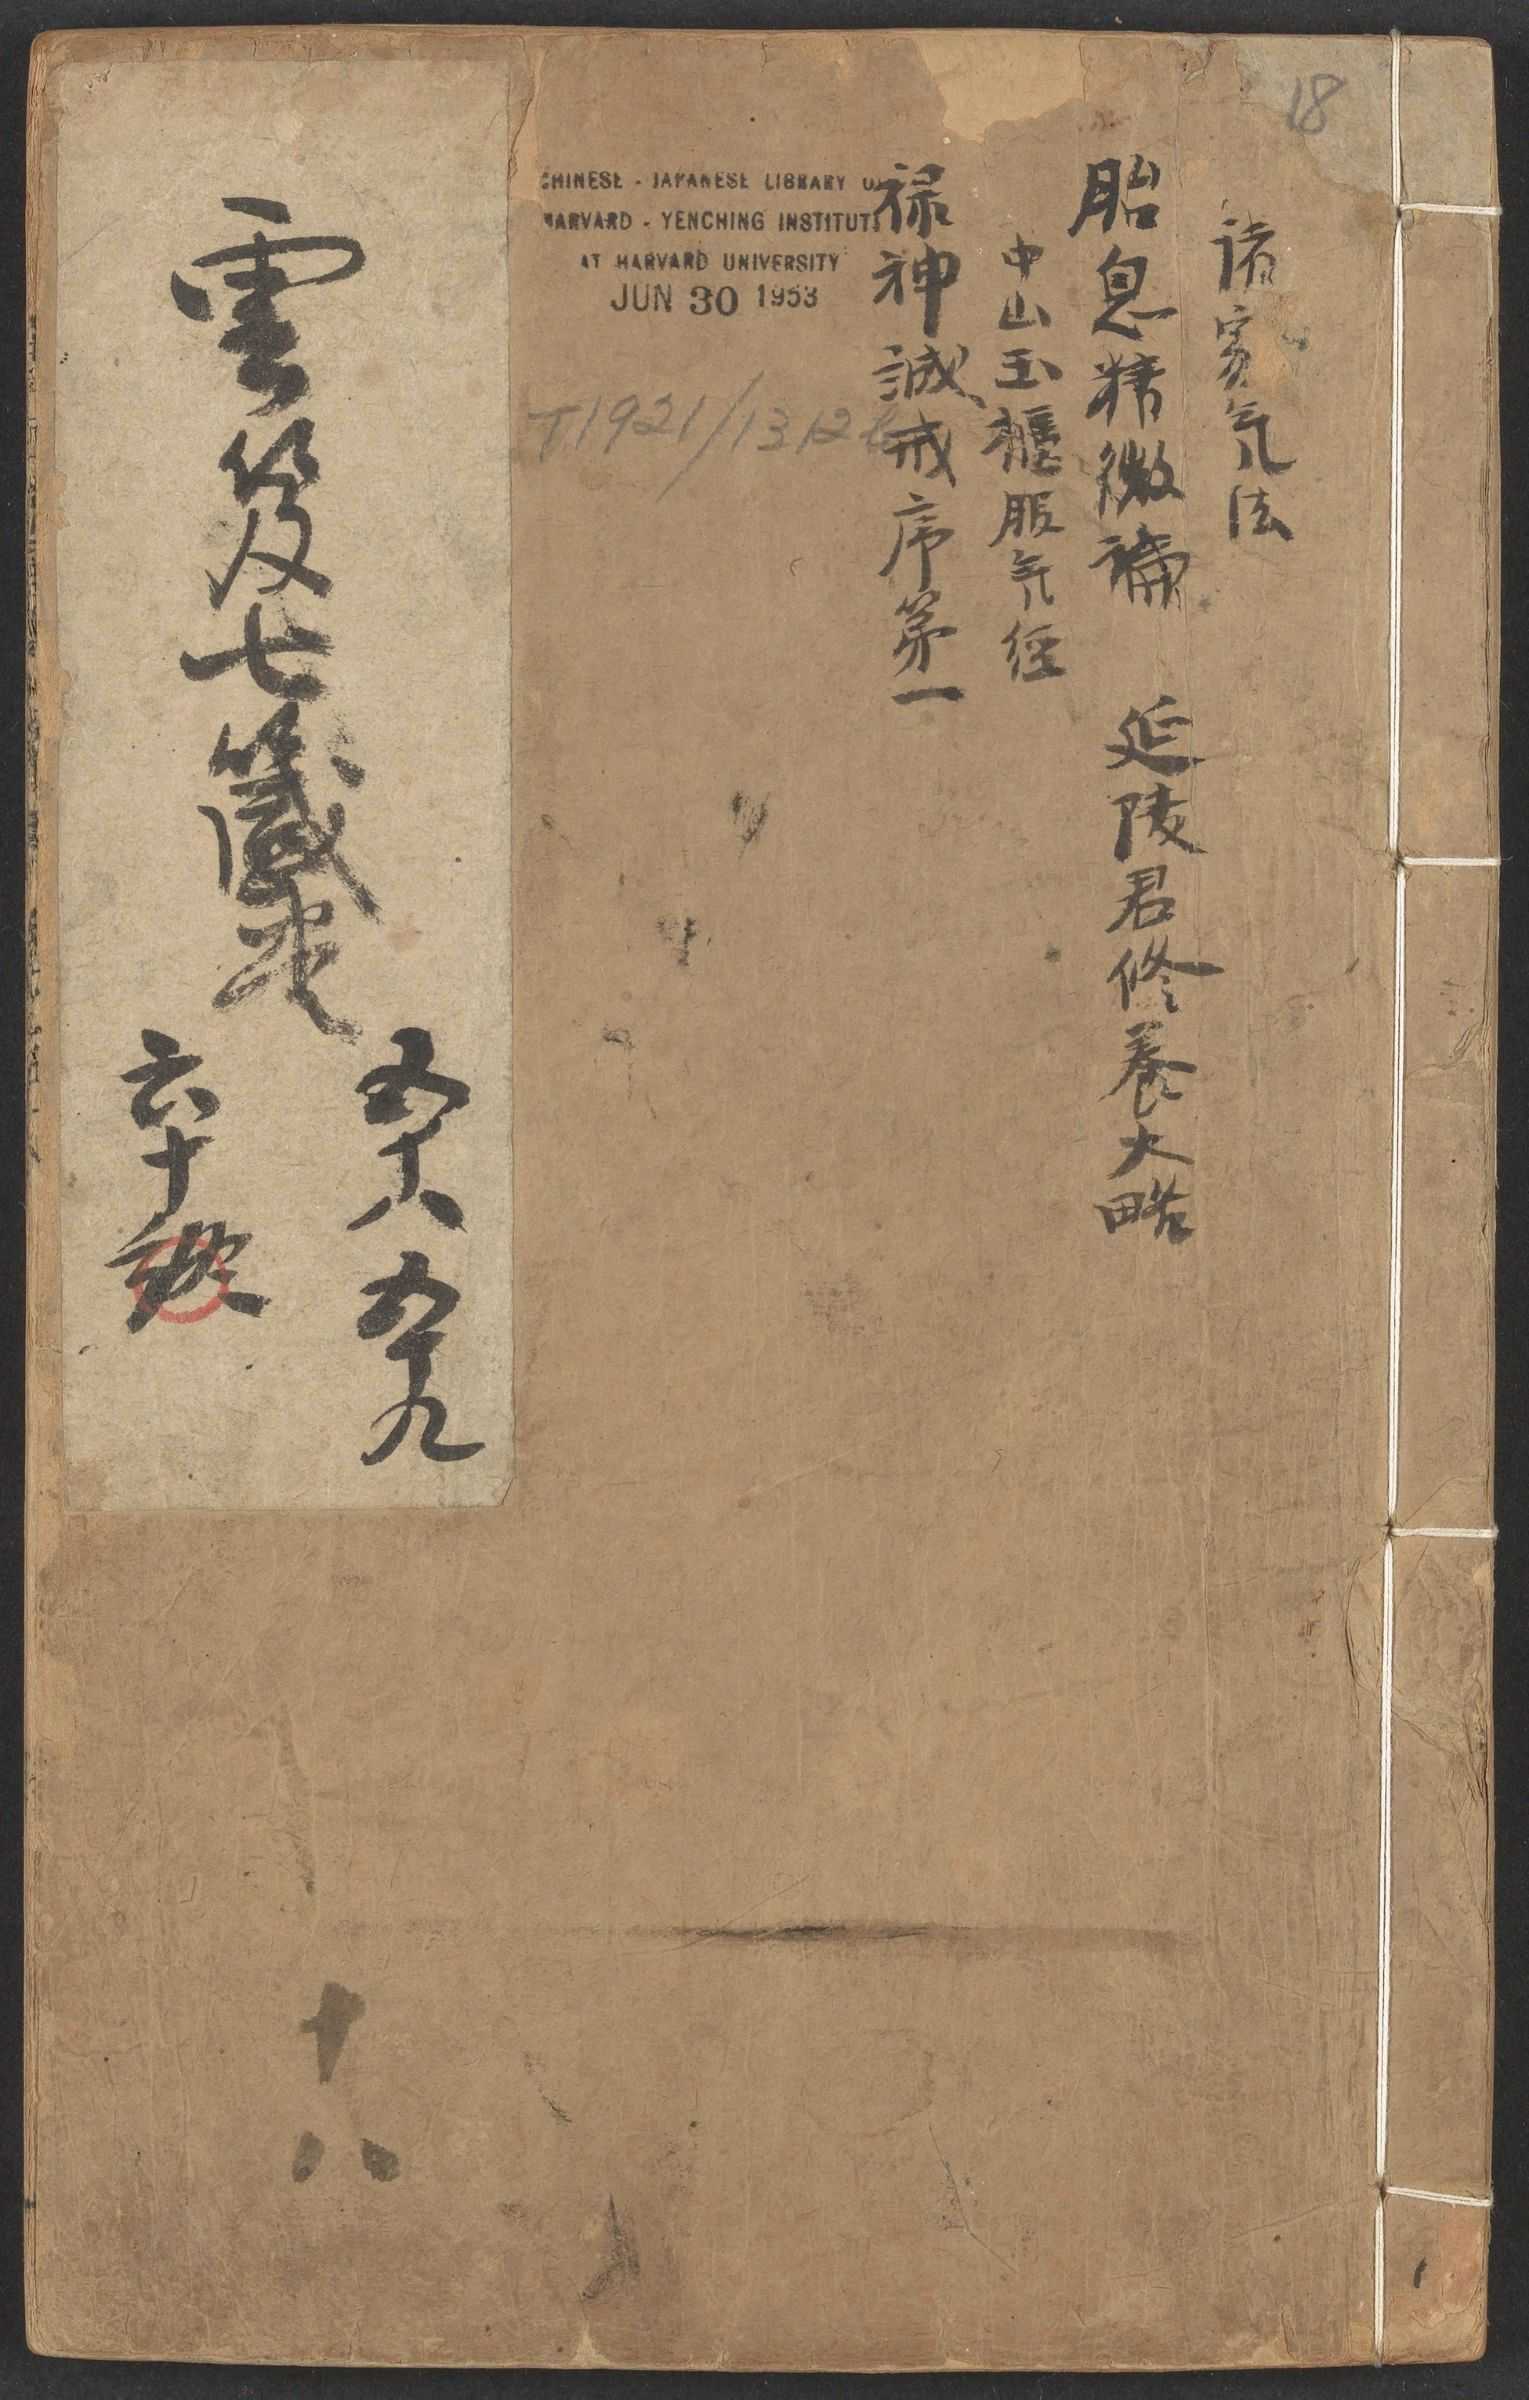 18
諸家气法
胎息精微論 延陵君修養大略
中山玉櫃服气經
禄神誡戒序第一
CHINESE - JAPANESE LIBRARY O
HARVARD - YENCHING INSTITUT
AT HARVARD UNIVERSITY
JUN 30 1953
T1921/1312
雲笈七籤卷
五十八 五十九
六十 終
十八